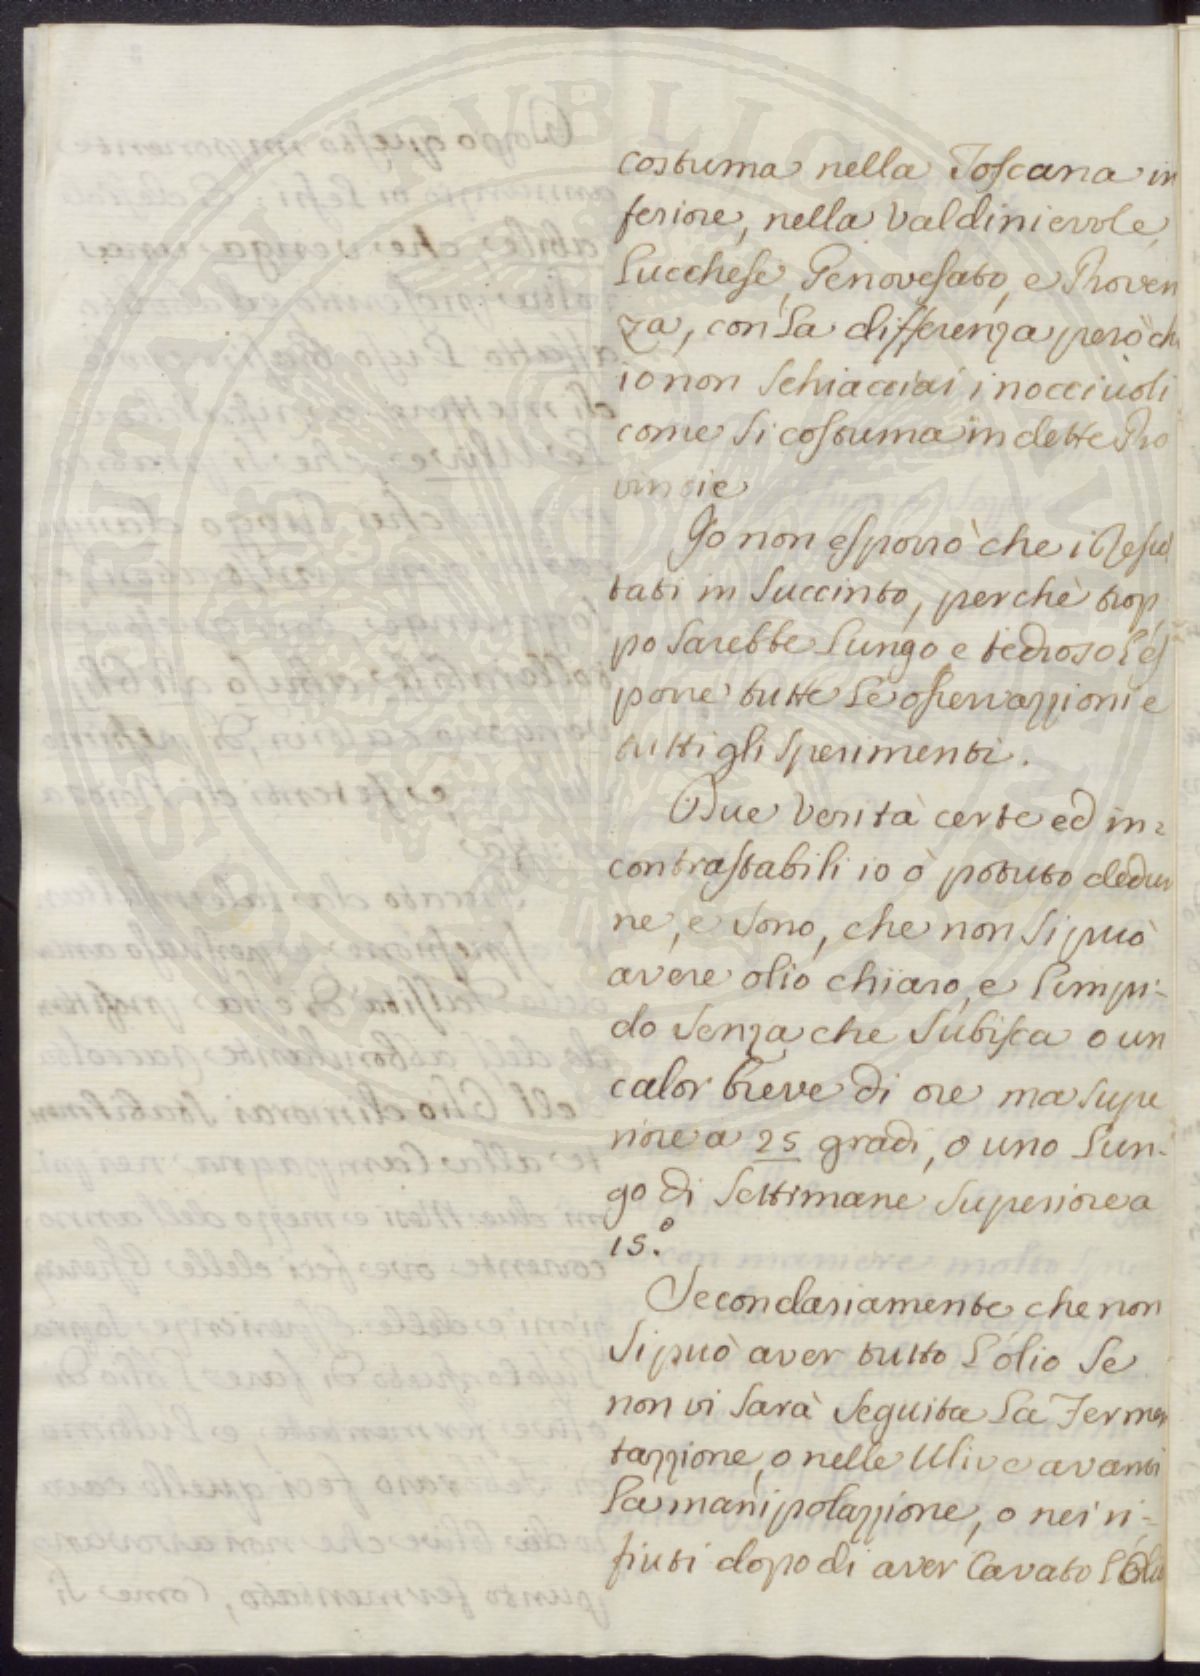 costuma nella Toscana in
feriore, nella Valdinievole,
Lucchese, Genovesato, e Proven
za, con la differenza però ch
io non schiacciai i noccivoli
come si costuma in dette Pro
vincie
Io non esporrò che i Resul
tati in succinto, perchè trop
po sarebbe lungo e tedioso l'es
porre tutte le osservazzioni e
tutti gli sperimenti.
Due verità certe ed in=
contrastabili io ò potuto dedur
ne, e sono, che non si può
avere olio chiaro, e limpi=
do senza che subisca o un
calor breve di ore ma supe
riore a 25 gradi, o uno lun=
go di settimane superiore a
15.°
Secondariamente che non
si può aver tutto l'olio se
non vi sarà seguita la Fermen
tazzione, o nelle Ulive avanti
la manipolazzione, o nei ri=
fiuti dopo di aver cavato l'Olio